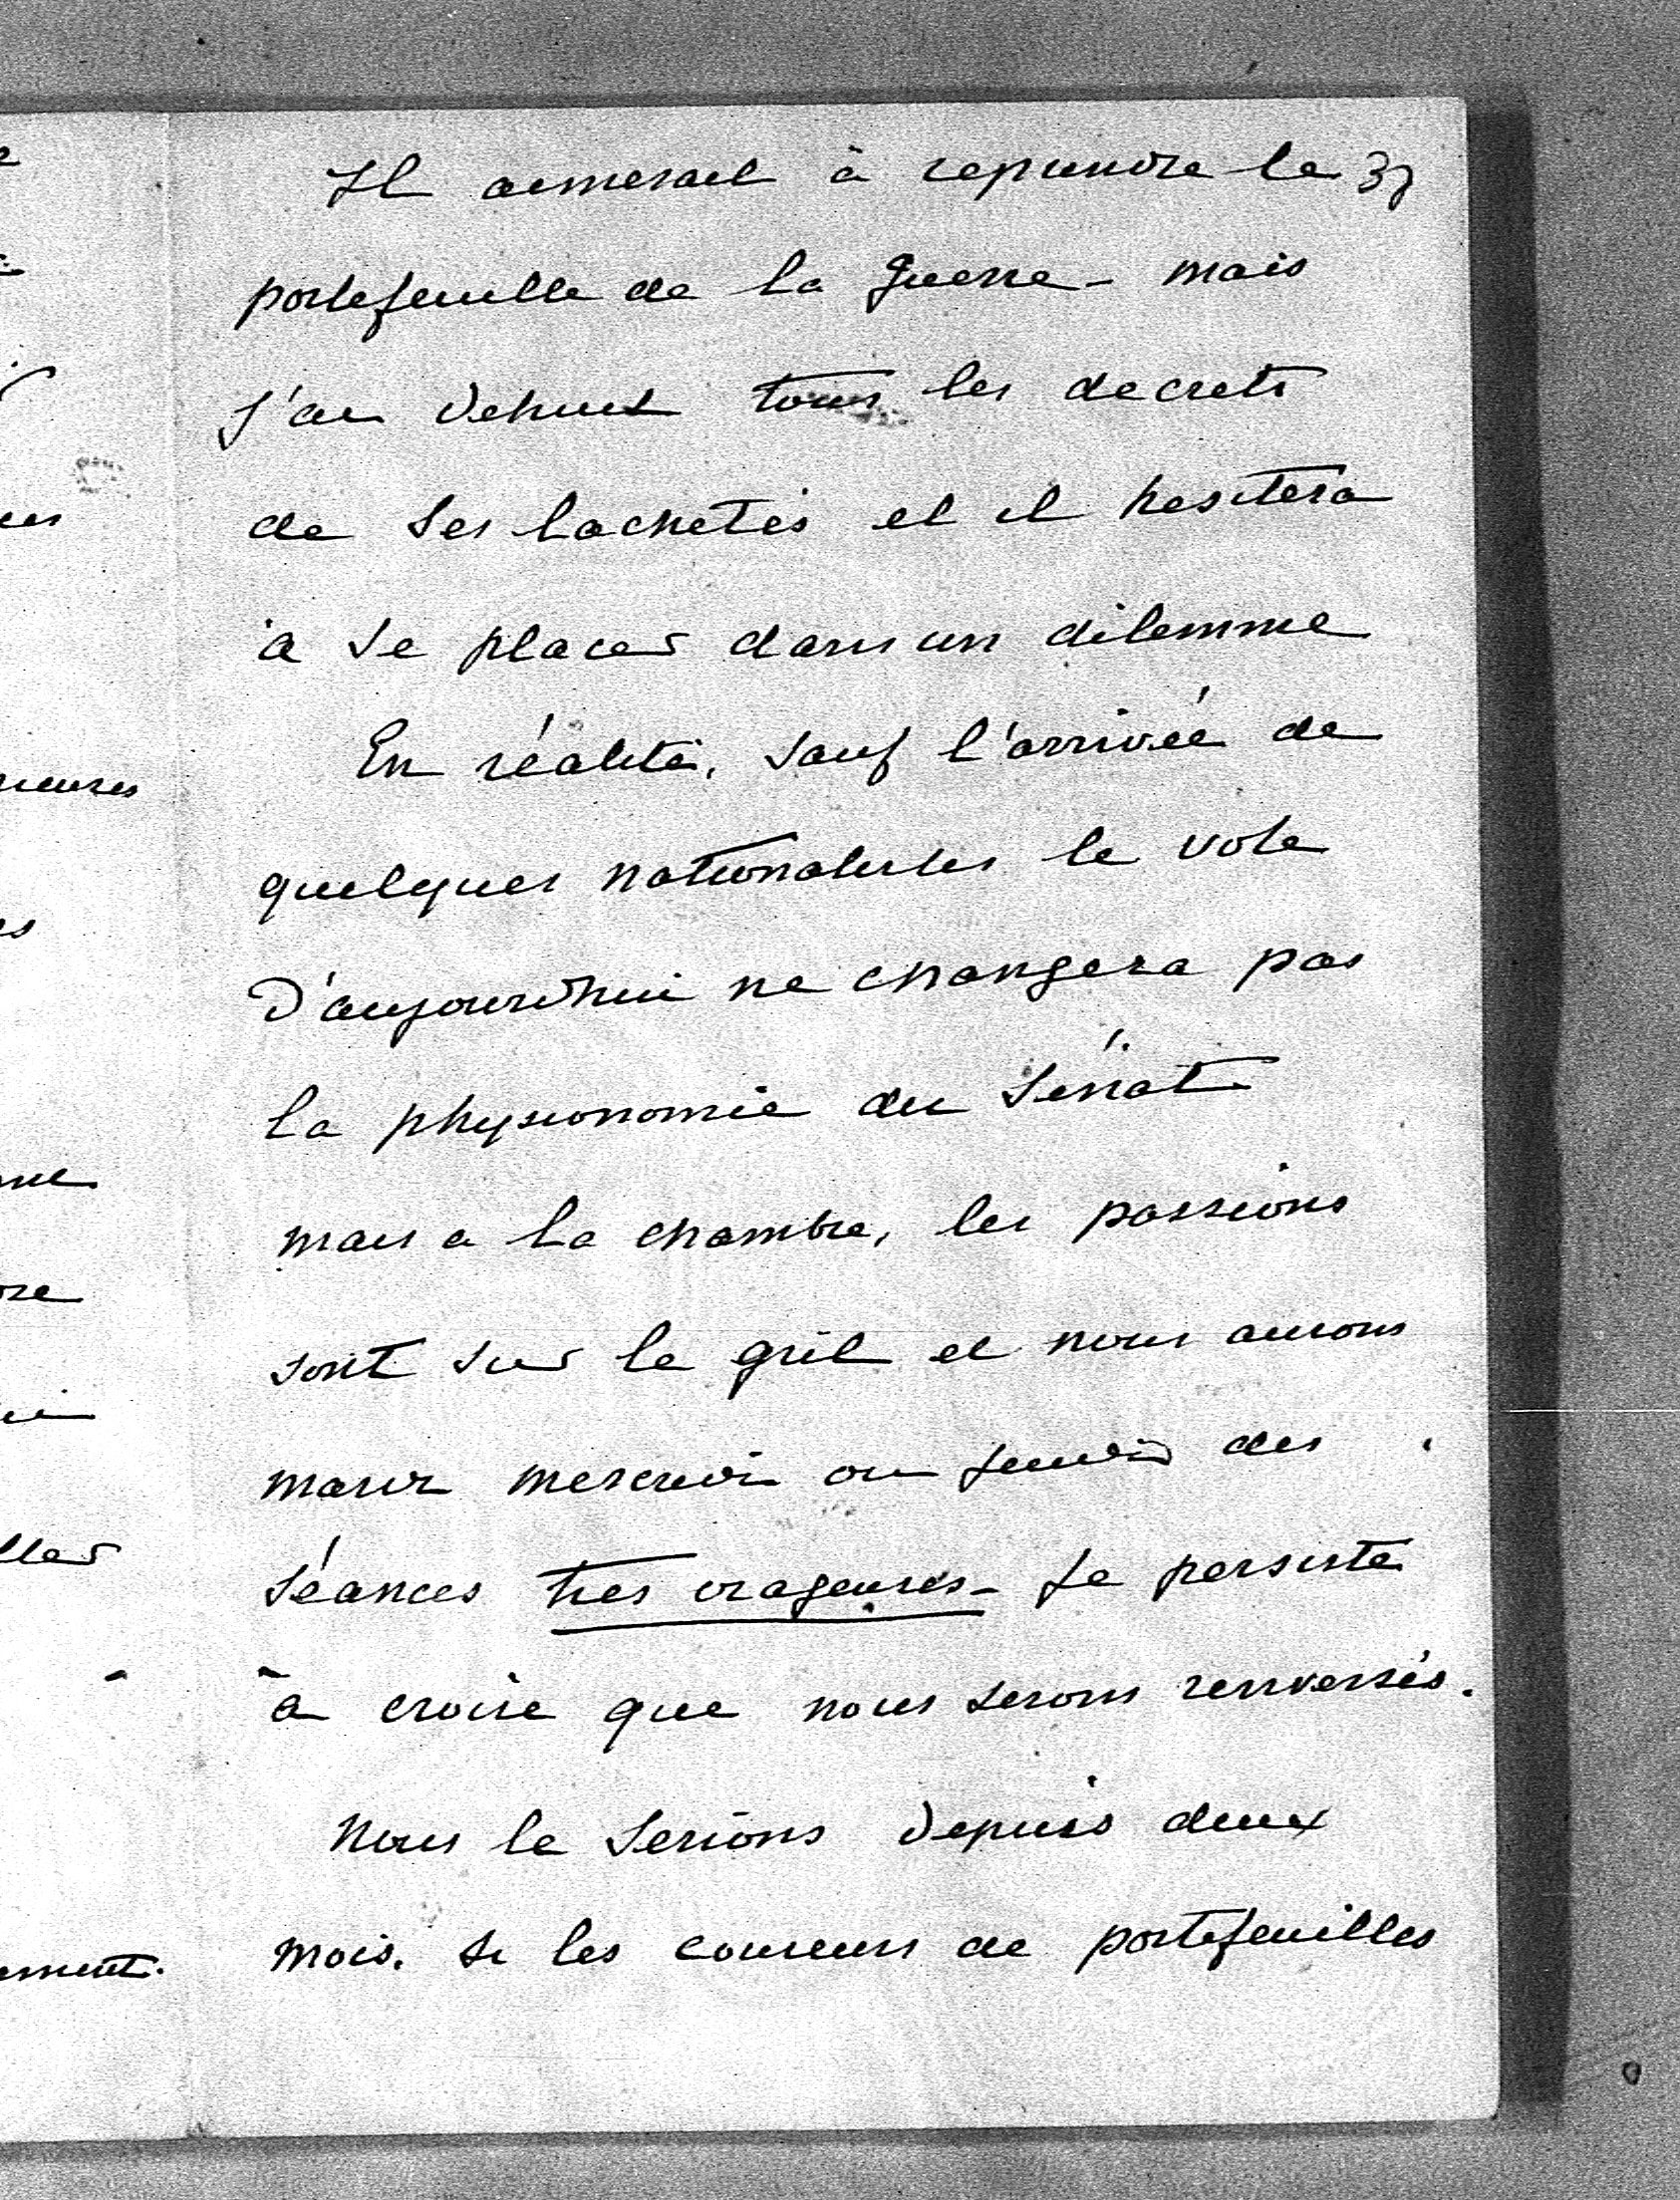 Il aimerait à reprendre le 37
portefeuille de la guerre - mais
j'ai detruit tous les decrets
de ses lachetés et il hesitera
à se placer dans un dilemme
En réalité, sauf l'arrivée de
quelques nationalistes le vote
D'aujourd'hui ne changera pas
la physionomie du Sénat
mais a la chambre, les passions
sont sur le gril et nous aurons
mardi mercredi ou jeudi des
séances tres orageuses - Je persiste
à croire que nous serons renversés.
Nous le serions depuis deux
mois. Si les coureurs de portefeuilles